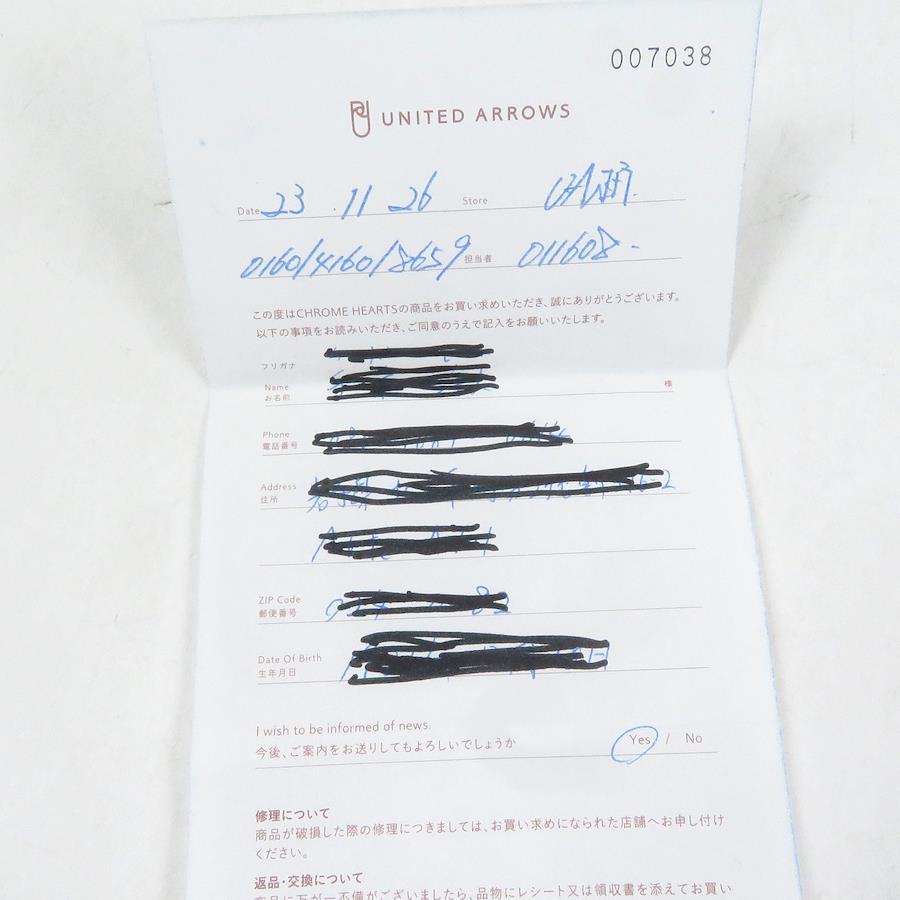 007038
UNITED ARROWS
Date 23.11 26 Store
0160/4160/8659 担当者 011608-
この度はCHROME HEARTSの商品をお買い求めいただき、誠にありがとうございます。
以下の事項をお読みいただき、ご同意のうえで記入をお願いいたします。
フリガナ
Name 様
お名前
Phone
電話番号
Address
住所
ZIP Code
郵便番号
Date Of Birth
生年月日
I wish to be informed of news.
今後、ご案内をお送りしてもよろしいでしょうか Yes / No
修理について
商品が破損した際の修理につきましては、お買い求めになられた店舗へお申し付け
ください。
返品・交換について
商品に万が一不備がございましたら、品物にレシート又は領収書を添えてお買い